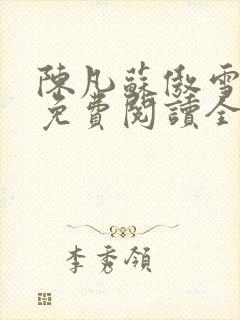 陳凡蘇傲雪
免費閱讀全
李秀領